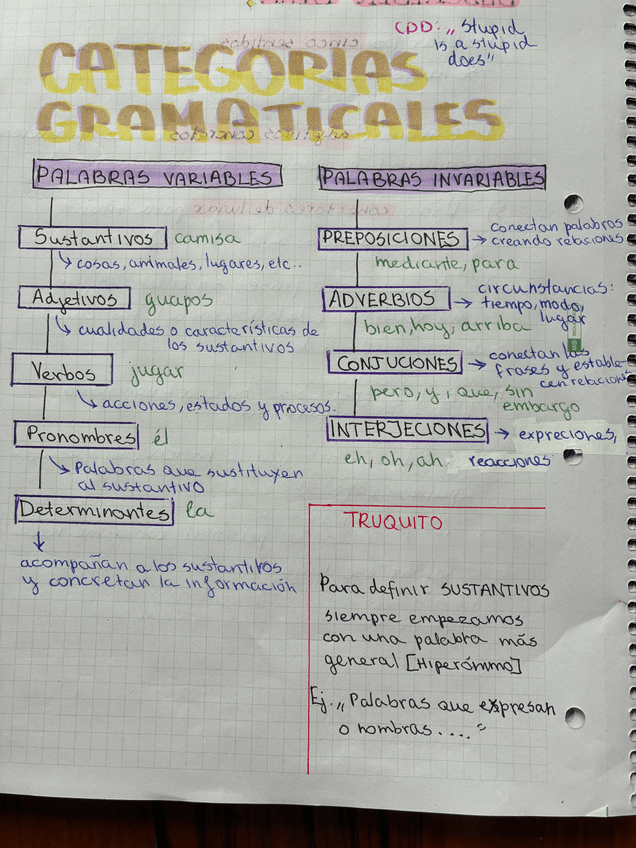 CPD: „Stupid
is a stupid
does"
CATEGORIAS
GRAMATICALES
PALABRAS VARIABLES
Sustantivos camisa
↳ cosas, animales, lugares, etc..
Adjetivos guapos
↳ cualidades o característicās de
los sustantivos
Verbos jugar
↳ acciones, estados y procesos.
Pronombres él
↳ Palabras que sustituyen
al sustantivo
Determinantes la
↓
acompañan a los sustantivos
y concretan la información
PALABRAS INVARIABLES
PREPOSICIONES → conectan palabras
creando relaciones
mediante, para
ADVERBIOS → circunstancias:
tiempo, modo,
lugar
bien, hoy, arriba
CONJUCIONES → conectan las
frases y estable-
cen relacions
pero, y, que, sin
embargo
INTERJECIONES → expreciones,
eh, oh, ah reacciones
TRUQUITO
Para definir SUSTANTIVOS
siempre empezamos
con una palabra más
general [Hiperónimo]
Ej. „Palabras que expresan
o nombras...."